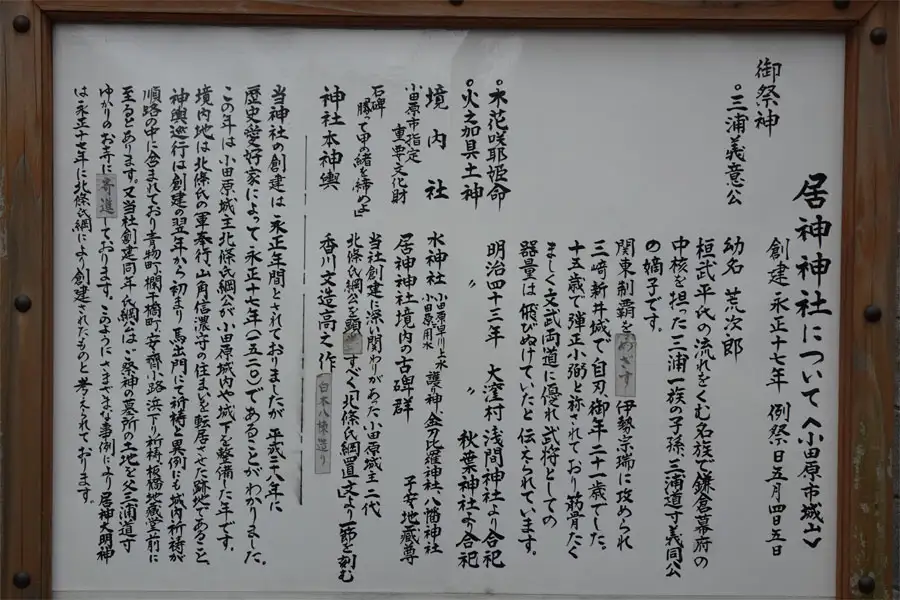 居神神社について〈小田原市城山〉
創建 永正十七年 例祭日五月四日五日
御祭神
○三浦義意公
幼名 荒次郎
桓武平氏の流れをくむ名族で鎌倉幕府の
中核を担った三浦一族の子孫、三浦道寸義同公
の嫡子です。
関東制覇をめざす伊勢宗瑞に攻められ
三崎新井城で自刃、御年二十一歳でした。
十五歳で弾正小弼と称されており筋骨たく
ましく文武両道に優れ武将としての
器量は飛びぬけていたと伝えられています。
○木花咲耶姫命 明治四十三年 大窪村浅間神社より合祀
○火之加具土神 〃 〃 秋葉神社より合祀
境内社 水神社 小田原早川上水 小田原用水 護り神、金刀比羅神社、八幡神社
子安地蔵尊
小田原市指定 重要文化財 居神神社境内の古碑群
石碑 「勝って甲の緒を締めよ」
当社創建に深い関わりがあった小田原城主二代
北條氏綱公を顕彰すべく「北條氏綱置文」より一節を刻む
神社本神輿 香川文造高之作 白木八棟造り
当神社の創建は永正年間とされておりましたが平成二十八年に
歴史愛好家によって永正十七年(一五二〇)であることがわかりました。
この年は小田原城主北條氏綱公が小田原城内や城下を整備した年です。
境内地は北條氏の軍奉行、山角信濃守の住まいを転居させた跡地であること
神輿巡行は創建の翌年から初まり馬出門にて祈祷と異例にも城内祈祷が
順路の中に含まれており青物町、欄干橋町、安齊小路、浜下り祈祷、板橋地蔵堂前に
至るとあります。又当社創建同年、氏綱公はご祭神の墓所の土地を父三浦道寸
ゆかりのお寺に寄進しております。このようにさまざまな事例により居神大明神
は永正十七年に北條氏綱により創建されたものと考えられております。